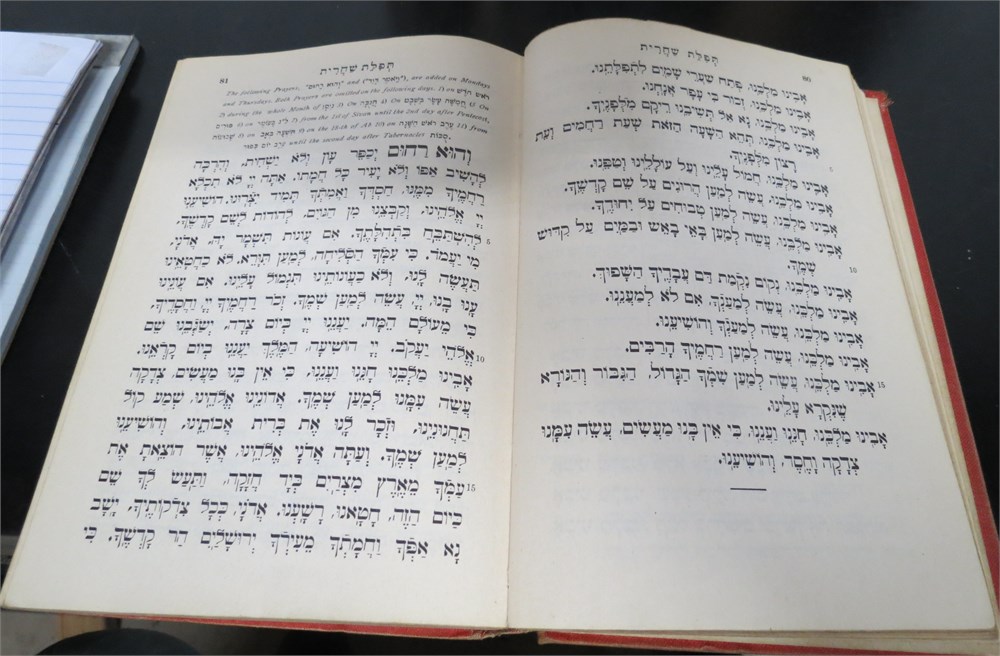 תְּפִלַּת שַׁחֲרִית
80
אָבִינוּ מַלְכֵּנוּ, פְּתַח שַׁעֲרֵי שָׁמַיִם לִתְפִלָּתֵנוּ.
אָבִינוּ מַלְכֵּנוּ, זְכוֹר כִּי עָפָר אֲנָחְנוּ.
אָבִינוּ מַלְכֵּנוּ, נָא אַל תְּשִׁיבֵנוּ רֵיקָם מִלְּפָנֶיךָ.
אָבִינוּ מַלְכֵּנוּ, תְּהֵא הַשָּׁעָה הַזֹּאת שְׁעַת רַחֲמִים וְעֵת
5 רָצוֹן מִלְּפָנֶיךָ.
אָבִינוּ מַלְכֵּנוּ, חֲמוֹל עָלֵינוּ וְעַל עוֹלָלֵינוּ וְטַפֵּנוּ.
אָבִינוּ מַלְכֵּנוּ, עֲשֵׂה לְמַעַן הֲרוּגִים עַל שֵׁם קָדְשֶׁךָ.
אָבִינוּ מַלְכֵּנוּ, עֲשֵׂה לְמַעַן טְבוּחִים עַל יִחוּדֶךָ.
אָבִינוּ מַלְכֵּנוּ, עֲשֵׂה לְמַעַן בָּאֵי בָאֵשׁ וּבַמַּיִם עַל קִדּוּשׁ
10 שְׁמֶךָ.
אָבִינוּ מַלְכֵּנוּ, נְקוֹם נִקְמַת דַּם עֲבָדֶיךָ הַשָּׁפוּךְ.
אָבִינוּ מַלְכֵּנוּ, עֲשֵׂה לְמַעַנְךָ אִם לֹא לְמַעֲנֵנוּ.
אָבִינוּ מַלְכֵּנוּ, עֲשֵׂה לְמַעַנְךָ וְהוֹשִׁיעֵנוּ.
אָבִינוּ מַלְכֵּנוּ, עֲשֵׂה לְמַעַן רַחֲמֶיךָ הָרַבִּים.
15 אָבִינוּ מַלְכֵּנוּ, עֲשֵׂה לְמַעַן שִׁמְךָ הַגָּדוֹל, הַגִּבּוֹר וְהַנּוֹרָא
שֶׁנִּקְרָא עָלֵינוּ.
אָבִינוּ מַלְכֵּנוּ, חָנֵּנוּ וַעֲנֵנוּ, כִּי אֵין בָּנוּ מַעֲשִׂים, עֲשֵׂה עִמָּנוּ
צְדָקָה וָחֶסֶד, וְהוֹשִׁיעֵנוּ.
תְּפִלַּת שַׁחֲרִית
81
The following Prayers, "וְהוּא רַחוּם" and ("וַיֹּאמֶר דָּוִד"), are added on Mondays
and Thursdays. Both Prayers are omitted on the following days. 1) on רֹאשׁ חֹדֶשׁ
2) during the whole Month of נִיסָן 3) On חֲנֻכָּה 4) On חֲמִשָּׁה עָשָׂר בִּשְׁבָט
5) on פּוּרִים 6) on ל"ג בָּעֹמֶר 7) from the 1st of Sivan until the 2nd day after Pentecost,
שָׁבוּעוֹת 8) on תִּשְׁעָה בְּאָב 9) on the 15th of Ab 10) on עֶרֶב רֹאשׁ הַשָּׁנָה 11) from
עֶרֶב יוֹם כִּפּוּר until the second day after Tabernacles סֻכּוֹת.
וְהוּא רַחוּם יְכַפֵּר עָוֹן וְלֹא יַשְׁחִית, וְהִרְבָּה
לְהָשִׁיב אַפּוֹ וְלֹא יָעִיר כָּל חֲמָתוֹ. אַתָּה יְיָ לֹא תִכְלָא
רַחֲמֶיךָ מִמֶּנּוּ, חַסְדְּךָ וַאֲמִתְּךָ תָּמִיד יִצְּרוּנוּ. הוֹשִׁיעֵנוּ
יְיָ אֱלֹהֵינוּ, וְקַבְּצֵנוּ מִן הַגּוֹיִם, לְהוֹדוֹת לְשֵׁם קָדְשֶׁךָ,
5 לְהִשְׁתַּבֵּחַ בִּתְהִלָּתֶךָ. אִם עֲוֹנוֹת תִּשְׁמָר יָהּ, אֲדֹנָי,
מִי יַעֲמֹד. כִּי עִמְּךָ הַסְּלִיחָה, לְמַעַן תִּוָּרֵא. לֹא כַחֲטָאֵינוּ
תַּעֲשֶׂה לָּנוּ, וְלֹא כַעֲוֹנוֹתֵינוּ תִּגְמוֹל עָלֵינוּ. אִם עֲוֹנֵינוּ
עָנוּ בָנוּ, יְיָ, עֲשֵׂה לְמַעַן שְׁמֶךָ. זְכֹר רַחֲמֶיךָ יְיָ, וַחֲסָדֶיךָ,
כִּי מֵעוֹלָם הֵמָּה. יַעֲנֵנוּ יְיָ בְּיוֹם צָרָה, יְשַׂגְּבֵנוּ שֵׁם
10 אֱלֹהֵי יַעֲקֹב. יְיָ הוֹשִׁיעָה, הַמֶּלֶךְ יַעֲנֵנוּ בְיוֹם קָרְאֵנוּ.
אָבִינוּ מַלְכֵּנוּ חָנֵּנוּ וַעֲנֵנוּ, כִּי אֵין בָּנוּ מַעֲשִׂים, צְדָקָה
עֲשֵׂה עִמָּנוּ לְמַעַן שְׁמֶךָ. אֲדוֹנֵינוּ אֱלֹהֵינוּ, שְׁמַע קוֹל
תַּחֲנוּנֵינוּ, וּזְכָר לָנוּ אֶת בְּרִית אֲבוֹתֵינוּ, וְהוֹשִׁיעֵנוּ
לְמַעַן שְׁמֶךָ. וְעַתָּה אֲדֹנָי אֱלֹהֵינוּ, אֲשֶׁר הוֹצֵאתָ אֶת
15 עַמְּךָ מֵאֶרֶץ מִצְרַיִם בְּיָד חֲזָקָה, וַתַּעַשׂ לְךָ שֵׁם
כַּיּוֹם הַזֶּה, חָטָאנוּ, רָשָׁעְנוּ. אֲדֹנָי, כְּכָל צִדְקוֹתֶיךָ, יָשָׁב
נָא אַפְּךָ וַחֲמָתְךָ מֵעִירְךָ יְרוּשָׁלַיִם הַר קָדְשֶׁךָ. כִּי